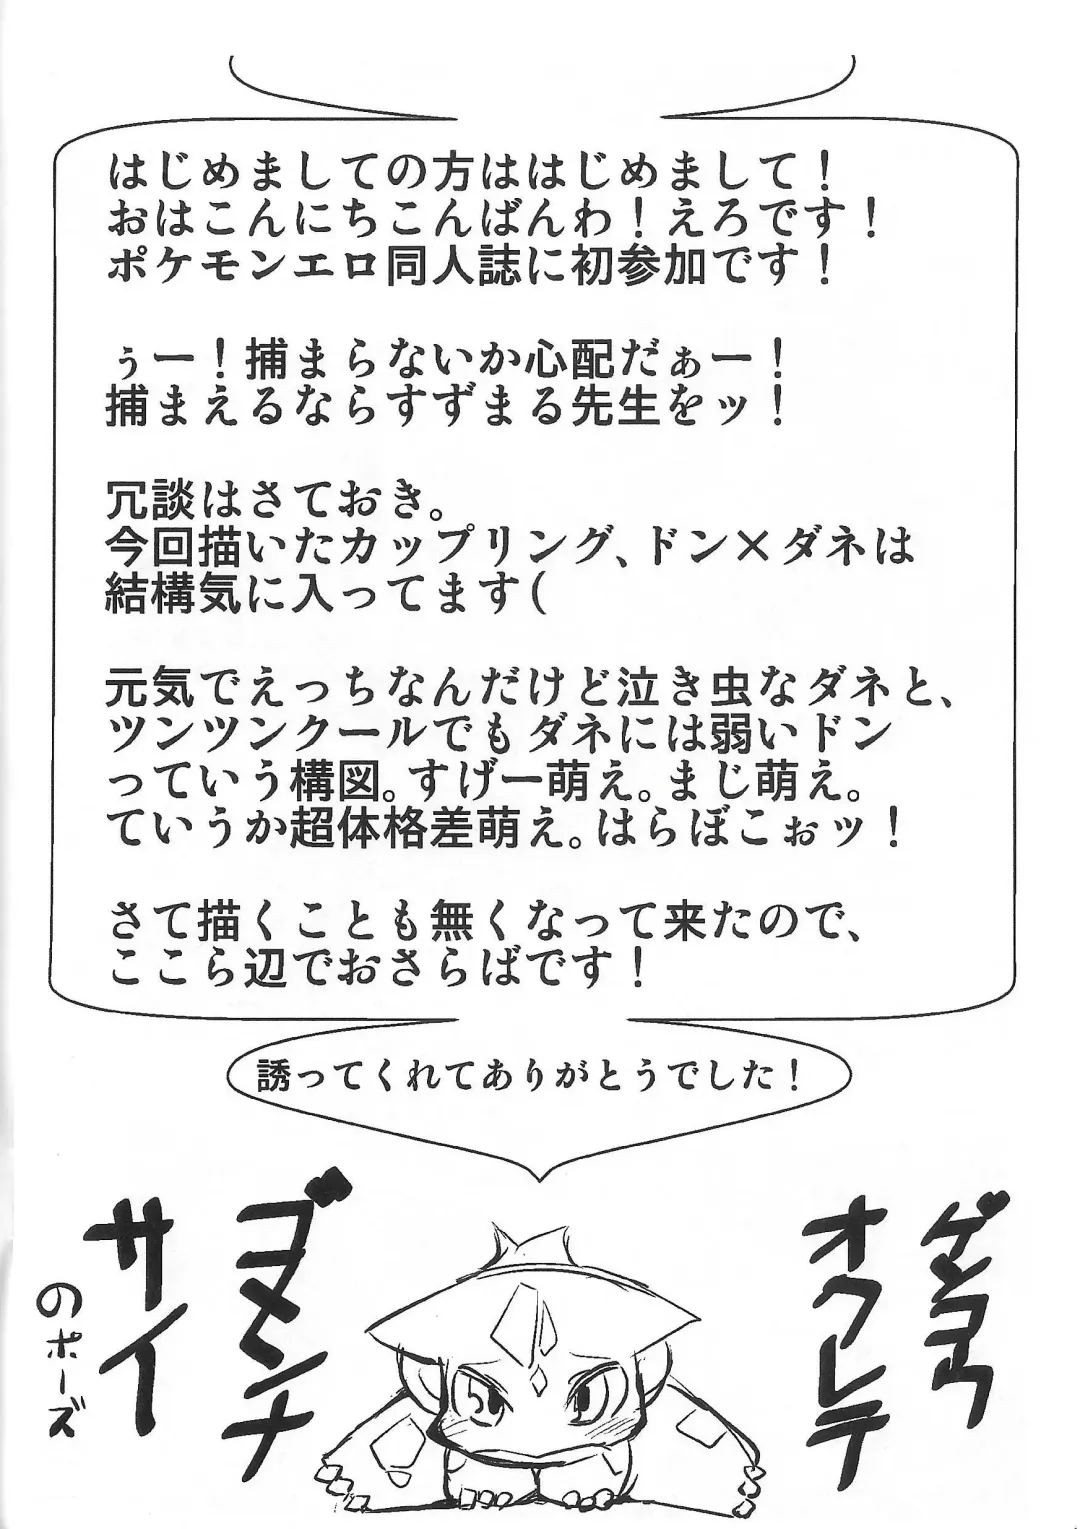 はじめましての方ははじめまして！
おはこんにちこんばんわ！えろです！
ポケモンエロ同人誌に初参加です！
ぅー！捕まらないか心配だぁー！
捕まえるならすずまる先生をッ！
冗談はさておき。
今回描いたカップリング、ドン×ダネは
結構気に入ってます(
元気でえっちなんだけど泣き虫なダネと、
ツンツンクールでもダネには弱いドン
っていう構図。すげー萌え。まじ萌え。
ていうか超体格差萌え。はらぼこぉッ！
さて描くことも無くなって来たので、
ここら辺でおさらばです！
誘ってくれてありがとうでした！
ゲンコウ
オクレテ
ゴメンナ
サイ
のポーズ